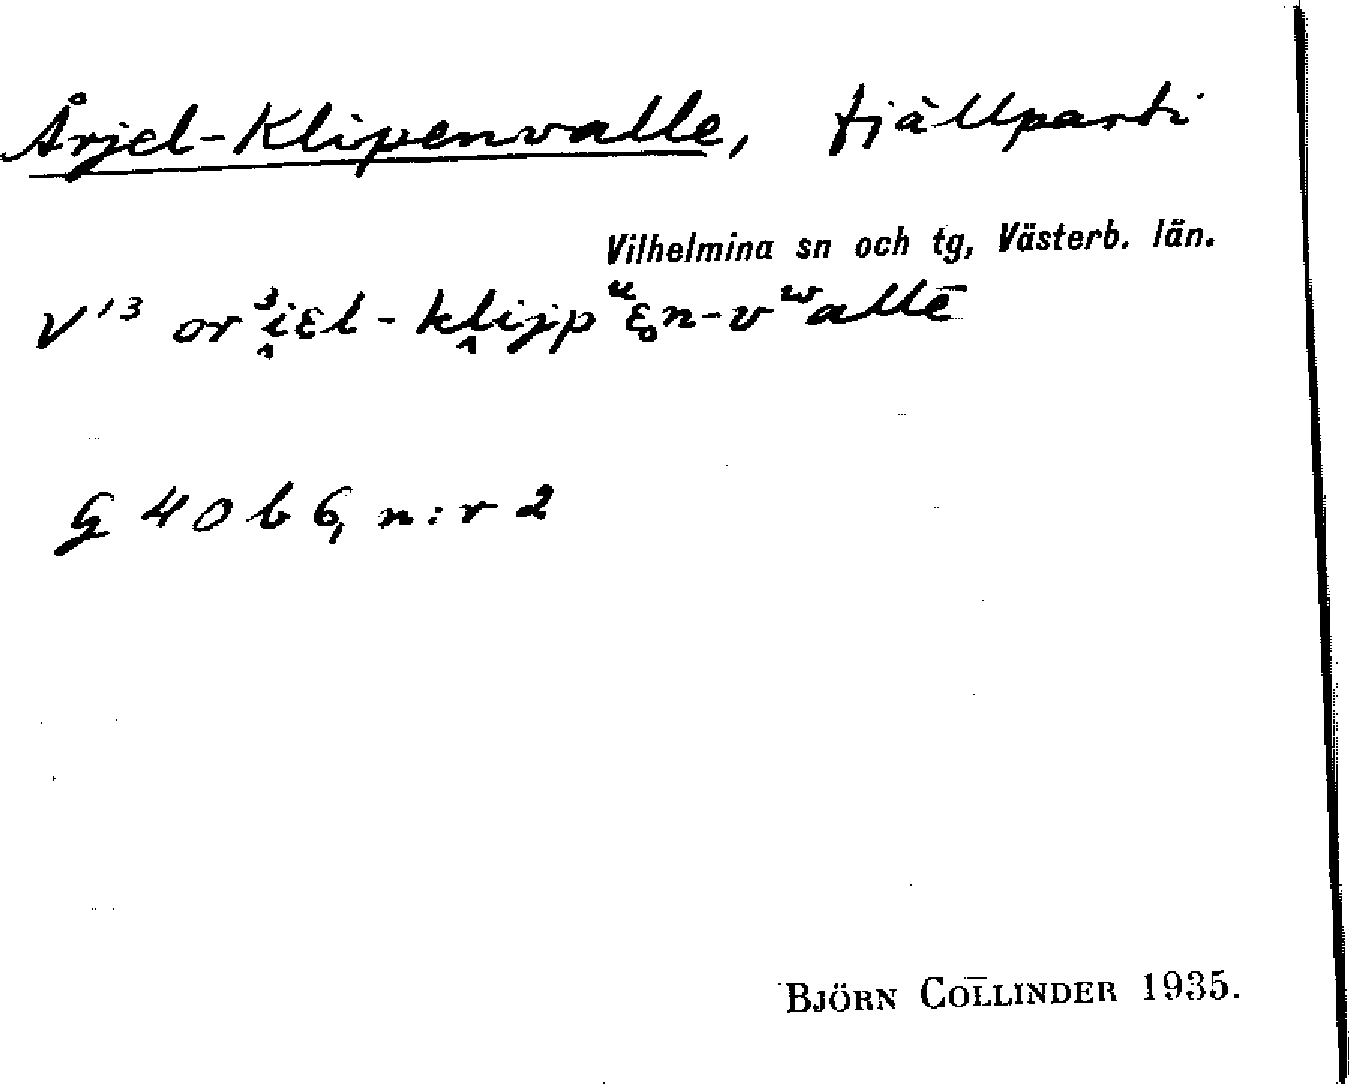 Årjel-Klipenvalle, fjällparti
Vilhelmina sn och tg, Västerb. län.
V'3 or³i̭ɛl-kli̭pp ᵘɛ̥n-vʷallē
G 40 b 6, n:r 2
BJÖRN COLLINDER 1935.